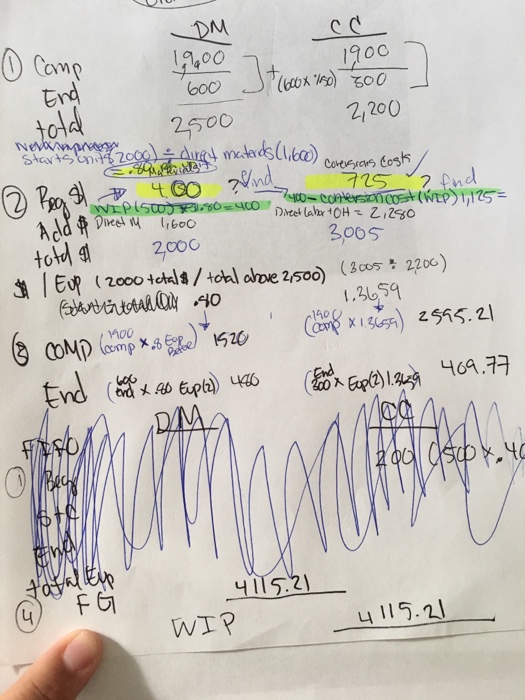 DM CC
① Comp 1900 1900
End 600 + (600 x %50) 300
total 2,500 2,200
starts units 2000) ÷ direct materials (1,600)
Conversions Costs
② Beg $ → 400 ? find 725 ? find
WIP (500) x .80 = 400 400 - conversion cost (WIP) 1,125 =
Add $ Direct M 1,600 Direct Labor + OH = 2,280
total $ 2,000 3,005
$ / Eup (2000 total $ / total above 2,500) (3005 ÷ 2200)
.80 1.3659
③ COMP (1900 comp x .8 Eup) 1520 (1900 comp x 1.3659) 2595.21
End (600 end x .80 Eup(2)) 480 (End 300 x Eup(2) 1.3659 409.77
DM CC
FIFO
① Beg 200 (500 x .40
StC
End
total Eup
4115.21
④ FG
WIP 4115.21